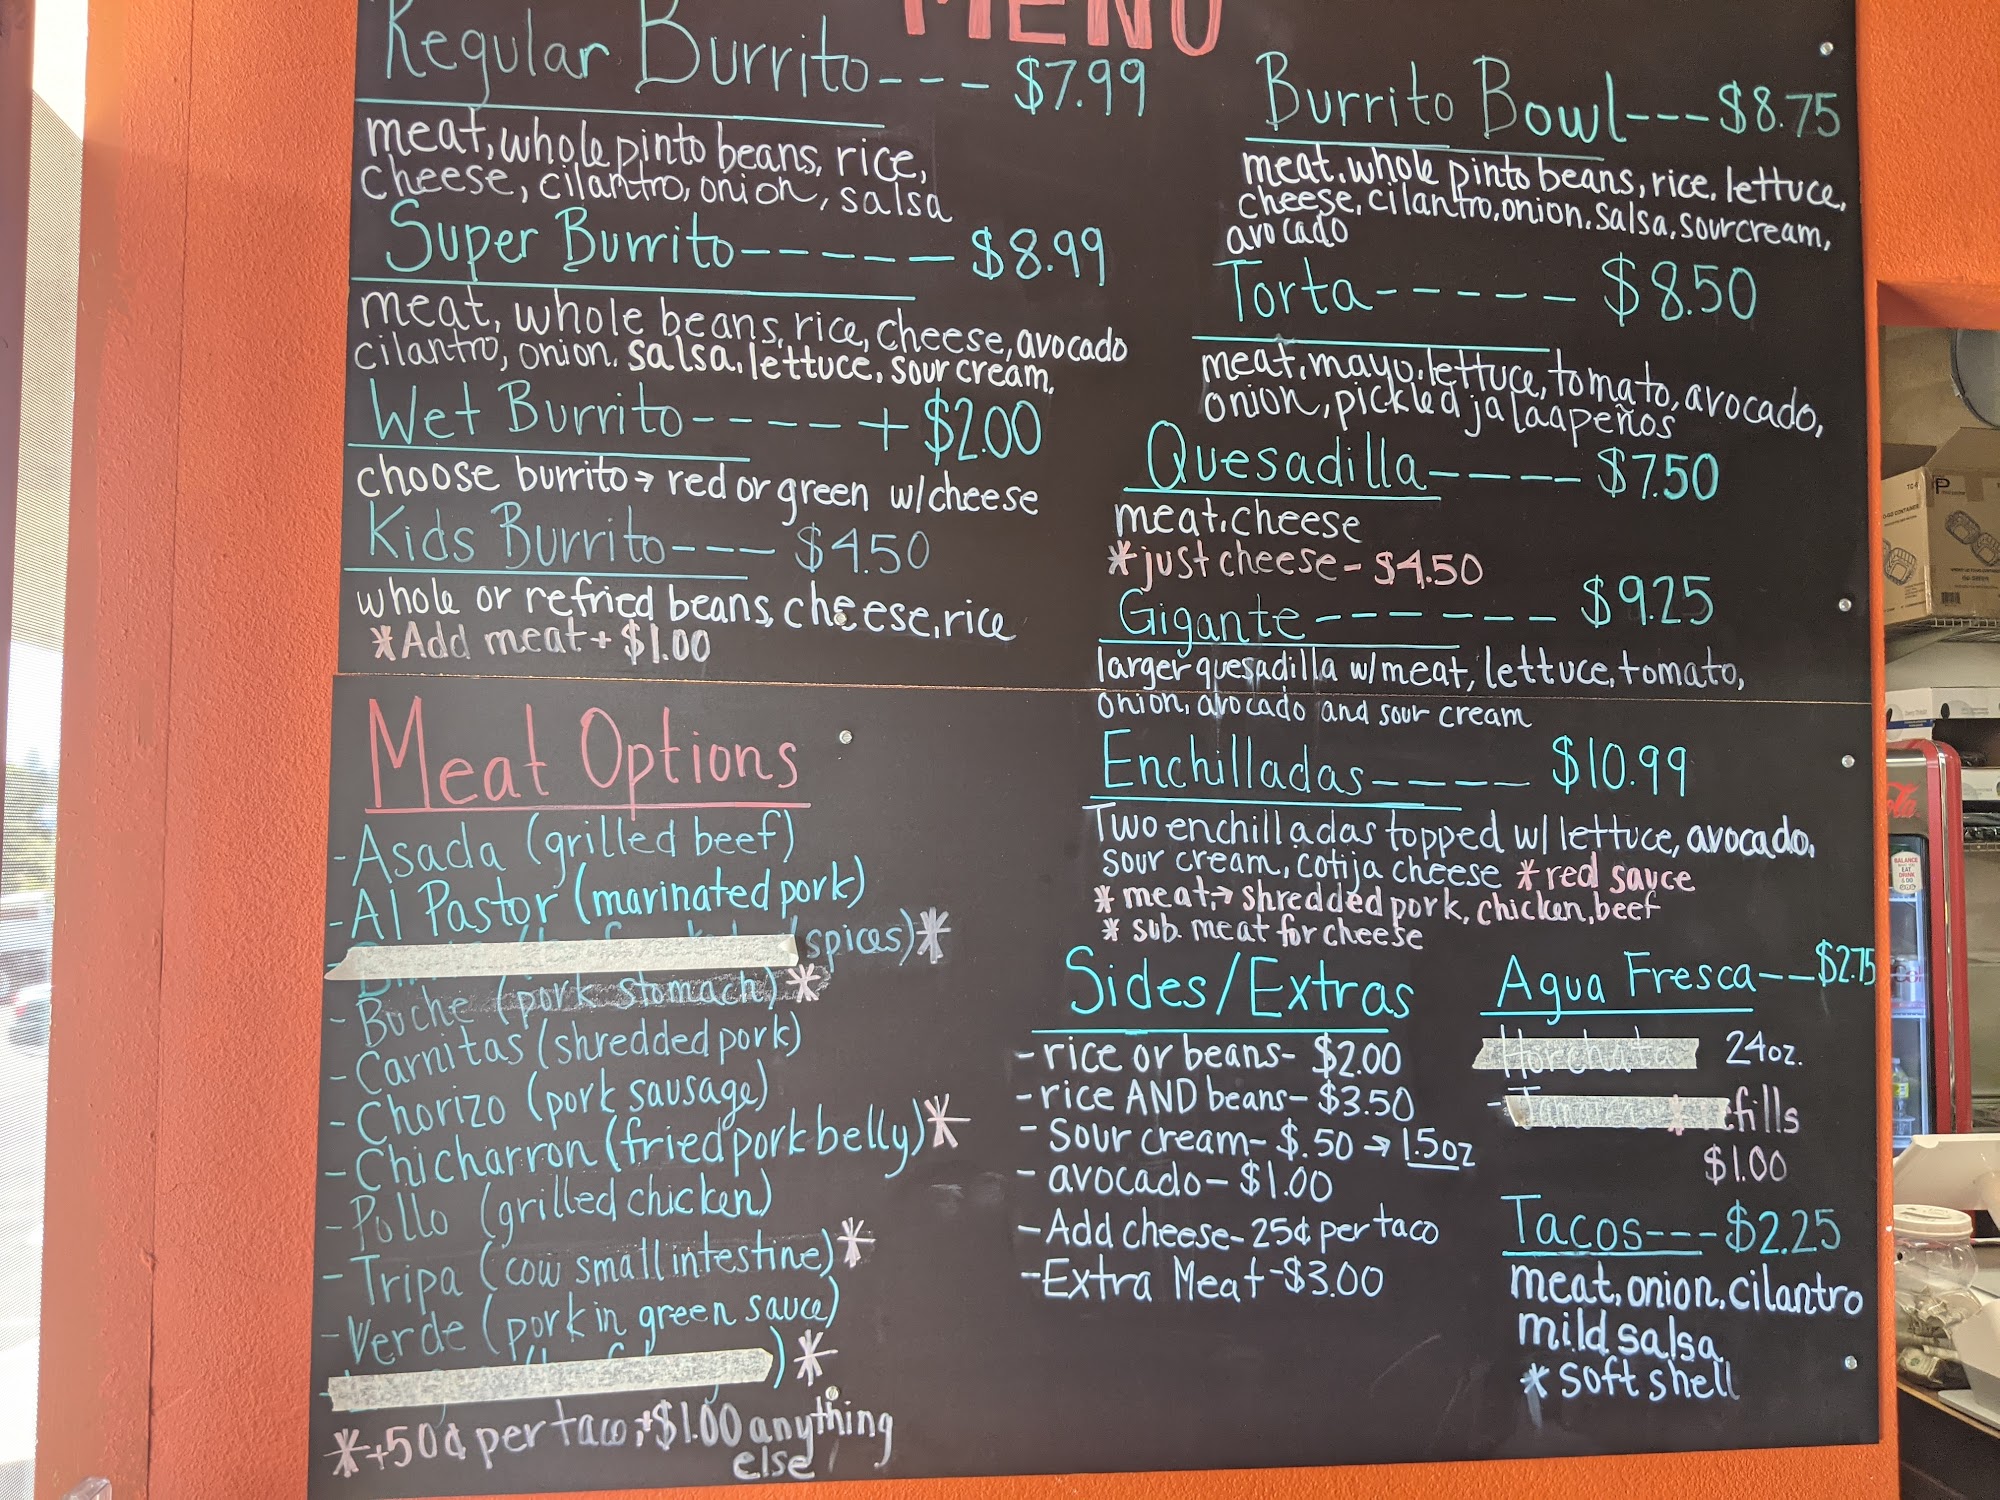 MENU
Regular Burrito--- $7.99
meat, whole pinto beans, rice,
cheese, cilantro, onion, salsa
Super Burrito----- $8.99
meat, whole beans, rice, cheese, avocado
cilantro, onion. salsa, lettuce, sour cream,
Wet Burrito---- + $2.00
choose burrito → red or green w/cheese
Kids Burrito--- $4.50
whole or refried beans, cheese, rice
*Add meat + $1.00
Meat Options
- Asada (grilled beef)
- Al Pastor (marinated pork)
spices)*
- Buche (pork stomach)*
- Carnitas (shredded pork)
- Chorizo (pork sausage)
- Chicharron (fried pork belly)*
- Pollo (grilled chicken)
- Tripa (cow small intestine)*
- Verde (pork in green sauce)
)*
*+50¢ per taco, +$1.00 anything
else
Burrito Bowl---$8.75
meat, whole pinto beans, rice, lettuce,
cheese, cilantro, onion, salsa, sour cream,
avocado
Torta----- $8.50
meat, mayo, lettuce, tomato, avocado,
onion, pickled jalaapeños
Quesadilla----- $7.50
meat, cheese
*just cheese - $4.50
Gigante------ $9.25
larger quesadilla w/meat, lettuce, tomato,
onion, avocado and sour cream
Enchilladas---- $10.99
Two enchilladas topped w/ lettuce, avocado,
sour cream, cotija cheese *red sauce
* meat → shredded pork, chicken, beef
* sub meat for cheese
Sides/Extras
- rice or beans- $2.00
- rice AND beans- $3.50
- sour cream- $.50 → 1.5oz
- avocado- $1.00
- Add cheese- 25¢ per taco
- Extra Meat -$3.00
Agua Fresca--$2.75
Horchata 24oz.
- Jamaica * refills
$1.00
Tacos---$2.25
meat, onion, cilantro
mild salsa
* soft shell